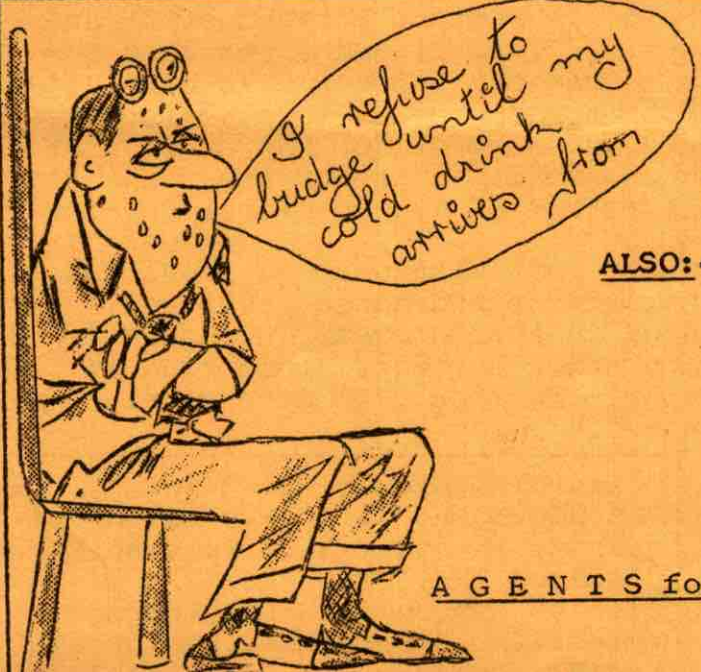 I refuse to
budge until my
cold drink
arrives from
ALSO:
A G E N T S fo